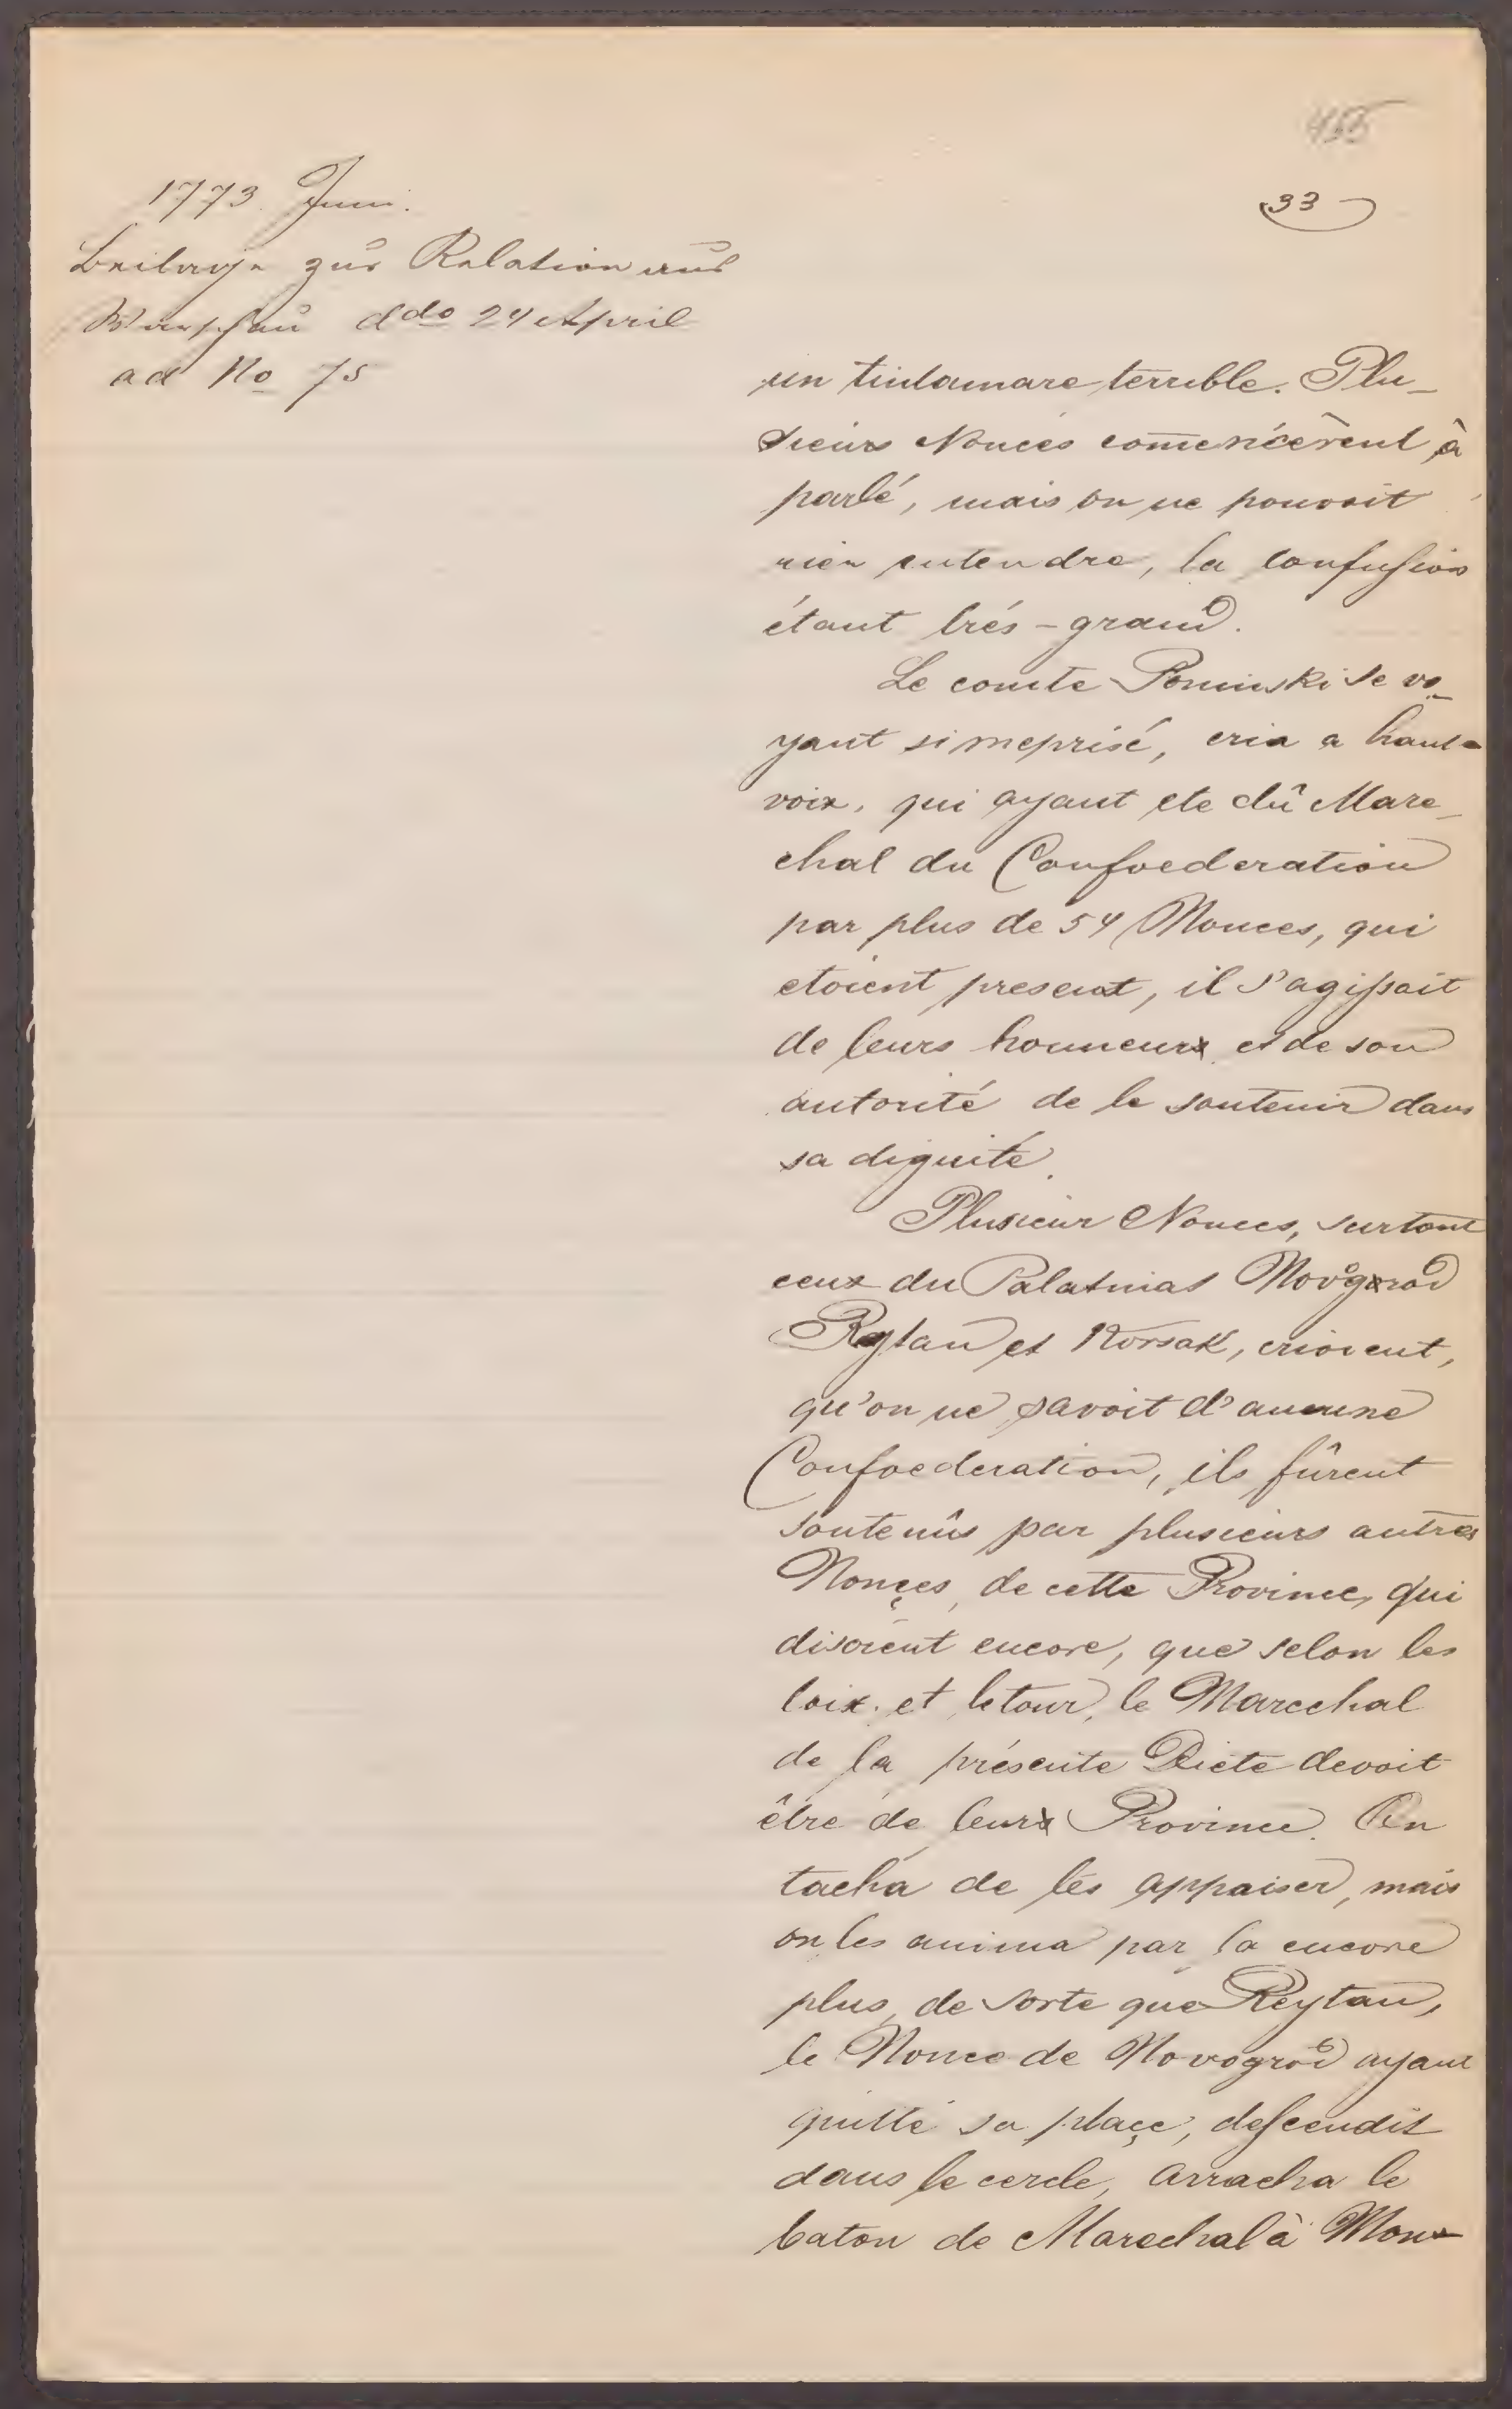 455
33
1773 Juni.
Beilage zur Relation aus
Warschau ddo 24 April
ad No 75
un tintamare terrible. Plu-
sieurs Nonces comencèrent à
parlé, mais on ne pouvoit
rien entendre, la confusion
étant trés-grand.
Le comte Poninski se vo-
yant si meprisé, cria a haut-
voix, qui ayant ete dû Mare-
chal du Confoederation
par plus de 54 Nonces, qui
etoient present, il s'agissait
de leurs honneurs et de son
autorité de le soutenir dans
sa dignité.
Plusieur Nonces, surtout
ceux du Palatinat Novgrod
Reytan et Korsak, crioient,
qu'on ne savoit d'aucune
Confoederation, ils fûrent
soutenûs par plusieurs autres
Nonçes, de cette Province, qui
disoient encore, que selon les
loix et le tour, le Marechal
de la présente Diete devoit
être de leurs Province. On
tacha de les appaiser, mais
on les anima par la encore
plus, de sorte que Reytan,
le Nonce de Novogrod ayant
quitté sa plaçe, descendit
dans le cercle, arracha le
baton de Marechal à Mons-